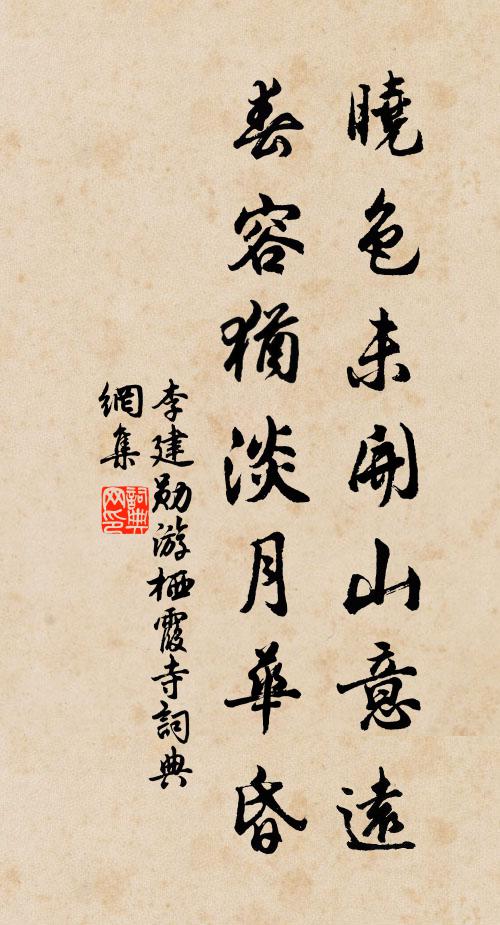 曉色未開山意遠
春容猶淡月華昏
李建勋游栖霞寺詞典
網集
詞典
网印